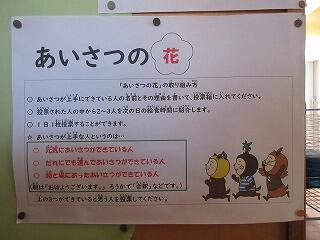 あいさつの花
「あいさつの花」の取り組み方
○ あいさつが上手にできている人の名前とその理由を書いて、投票箱に入れてください。
○ 投票された人の中から2～3人を次の日の給食時間に紹介します。
○ 1日1枚投票することができます。
☆ あいさつが上手な人というのは…
○ 元気にあいさつができている人
○ だれにでも進んであいさつができている人
○ 時と場にあったあいさつができている人
(朝は「おはようございます。」ろうかで「会釈」などです。)
上の3つができていると思う人を投票してください。